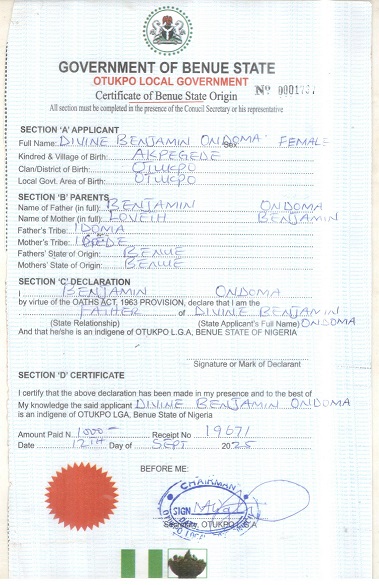 GOVERNMENT OF BENUE STATE
OTUKPO LOCAL GOVERNMENT
Certificate of Benue State Origin
No 0001737
All section must be completed in the presence of the Conucil Secretary or his representative
SECTION 'A' APPLICANT
Full Name: DIVINE BENJAMIN ONDOMA Sex: FEMALE
Kindred & Village of Birth: AKPEGEDE
Clan/District of Birth: OTUKPO
Local Govt. Area of Birth: OTUKPO
SECTION 'B' PARENTS
Name of Father (in full): BENJAMIN ONDOMA
Name of Mother (in full): LOVETH BENJAMIN
Father's Tribe: IDOMA
Mother's Tribe: IGEDE
Fathers' State of Origin: BENUE
Mothers' State of Origin: BENUE
SECTION 'C' DECLARATION
I BENJAMIN ONDOMA
by virtue of the OATHS ACT, 1963 PROVISION, declare that I am the
FATHER of DIVINE BENJAMIN
(State Relationship) (State Applicant's Full Name) ONDOMA
And that he/she is an indigene of OTUKPO L.G.A, BENUE STATE OF NIGERIA
Signature or Mark of Declarant
SECTION 'D' CERTIFICATE
I certify that the above declaration has been made in my presence and to the best of
My knowledge the said applicant DIVINE BENJAMIN ONDOMA
is an indigene of OTUKPO LGA, Benue State of Nigeria
Amount Paid N. 1000- Receipt No 19671
Date 12TH Day of SEPT 2025
BEFORE ME:
CHAIRMAN
SIGN
Secretary, OTUKPO L.G.A